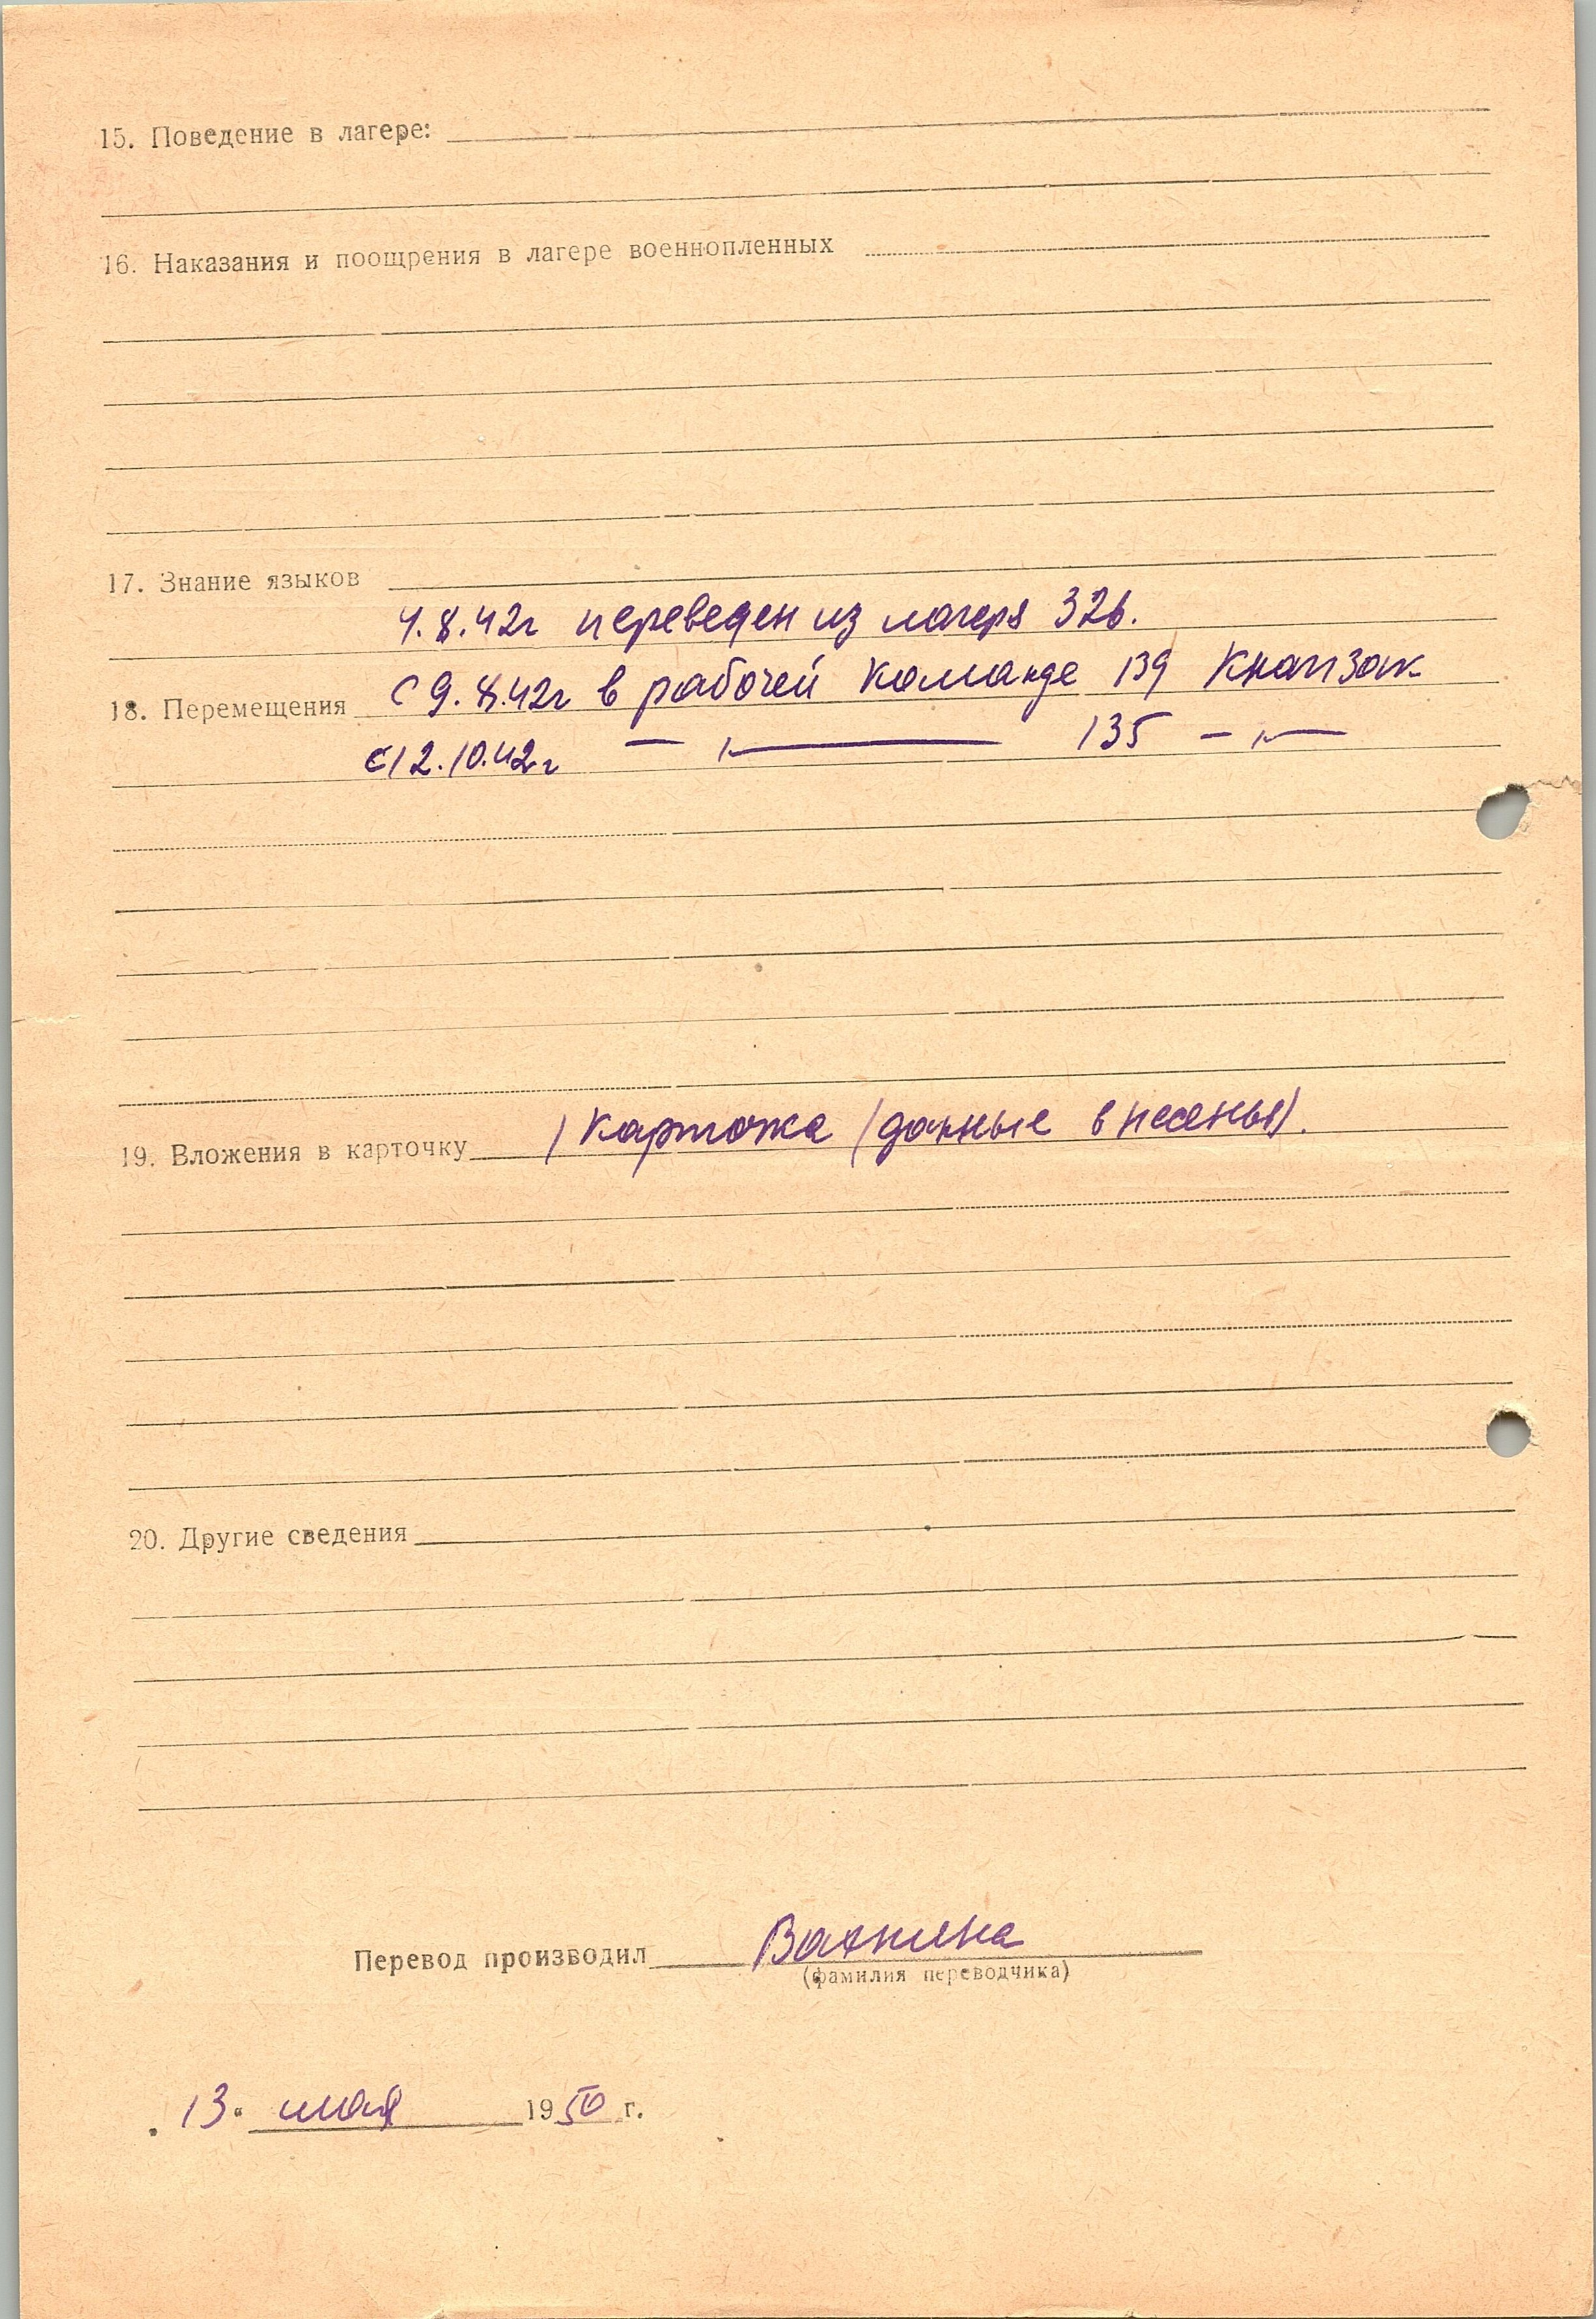 15. Поведение в лагере:
16. Наказания и поощрения в лагере военнопленных
17. Знание языков
4.8.42г переведен из лагеря 326.
18. Перемещения с 9.8.42г в рабочей команде 139 Кнапзак
с 12.10.42г — " — 135 — " —
19. Вложения в карточку 1 карточка (данные внесены).
20. Другие сведения
Перевод производил
(фамилия переводчика)
„13“ мая 1950 г.